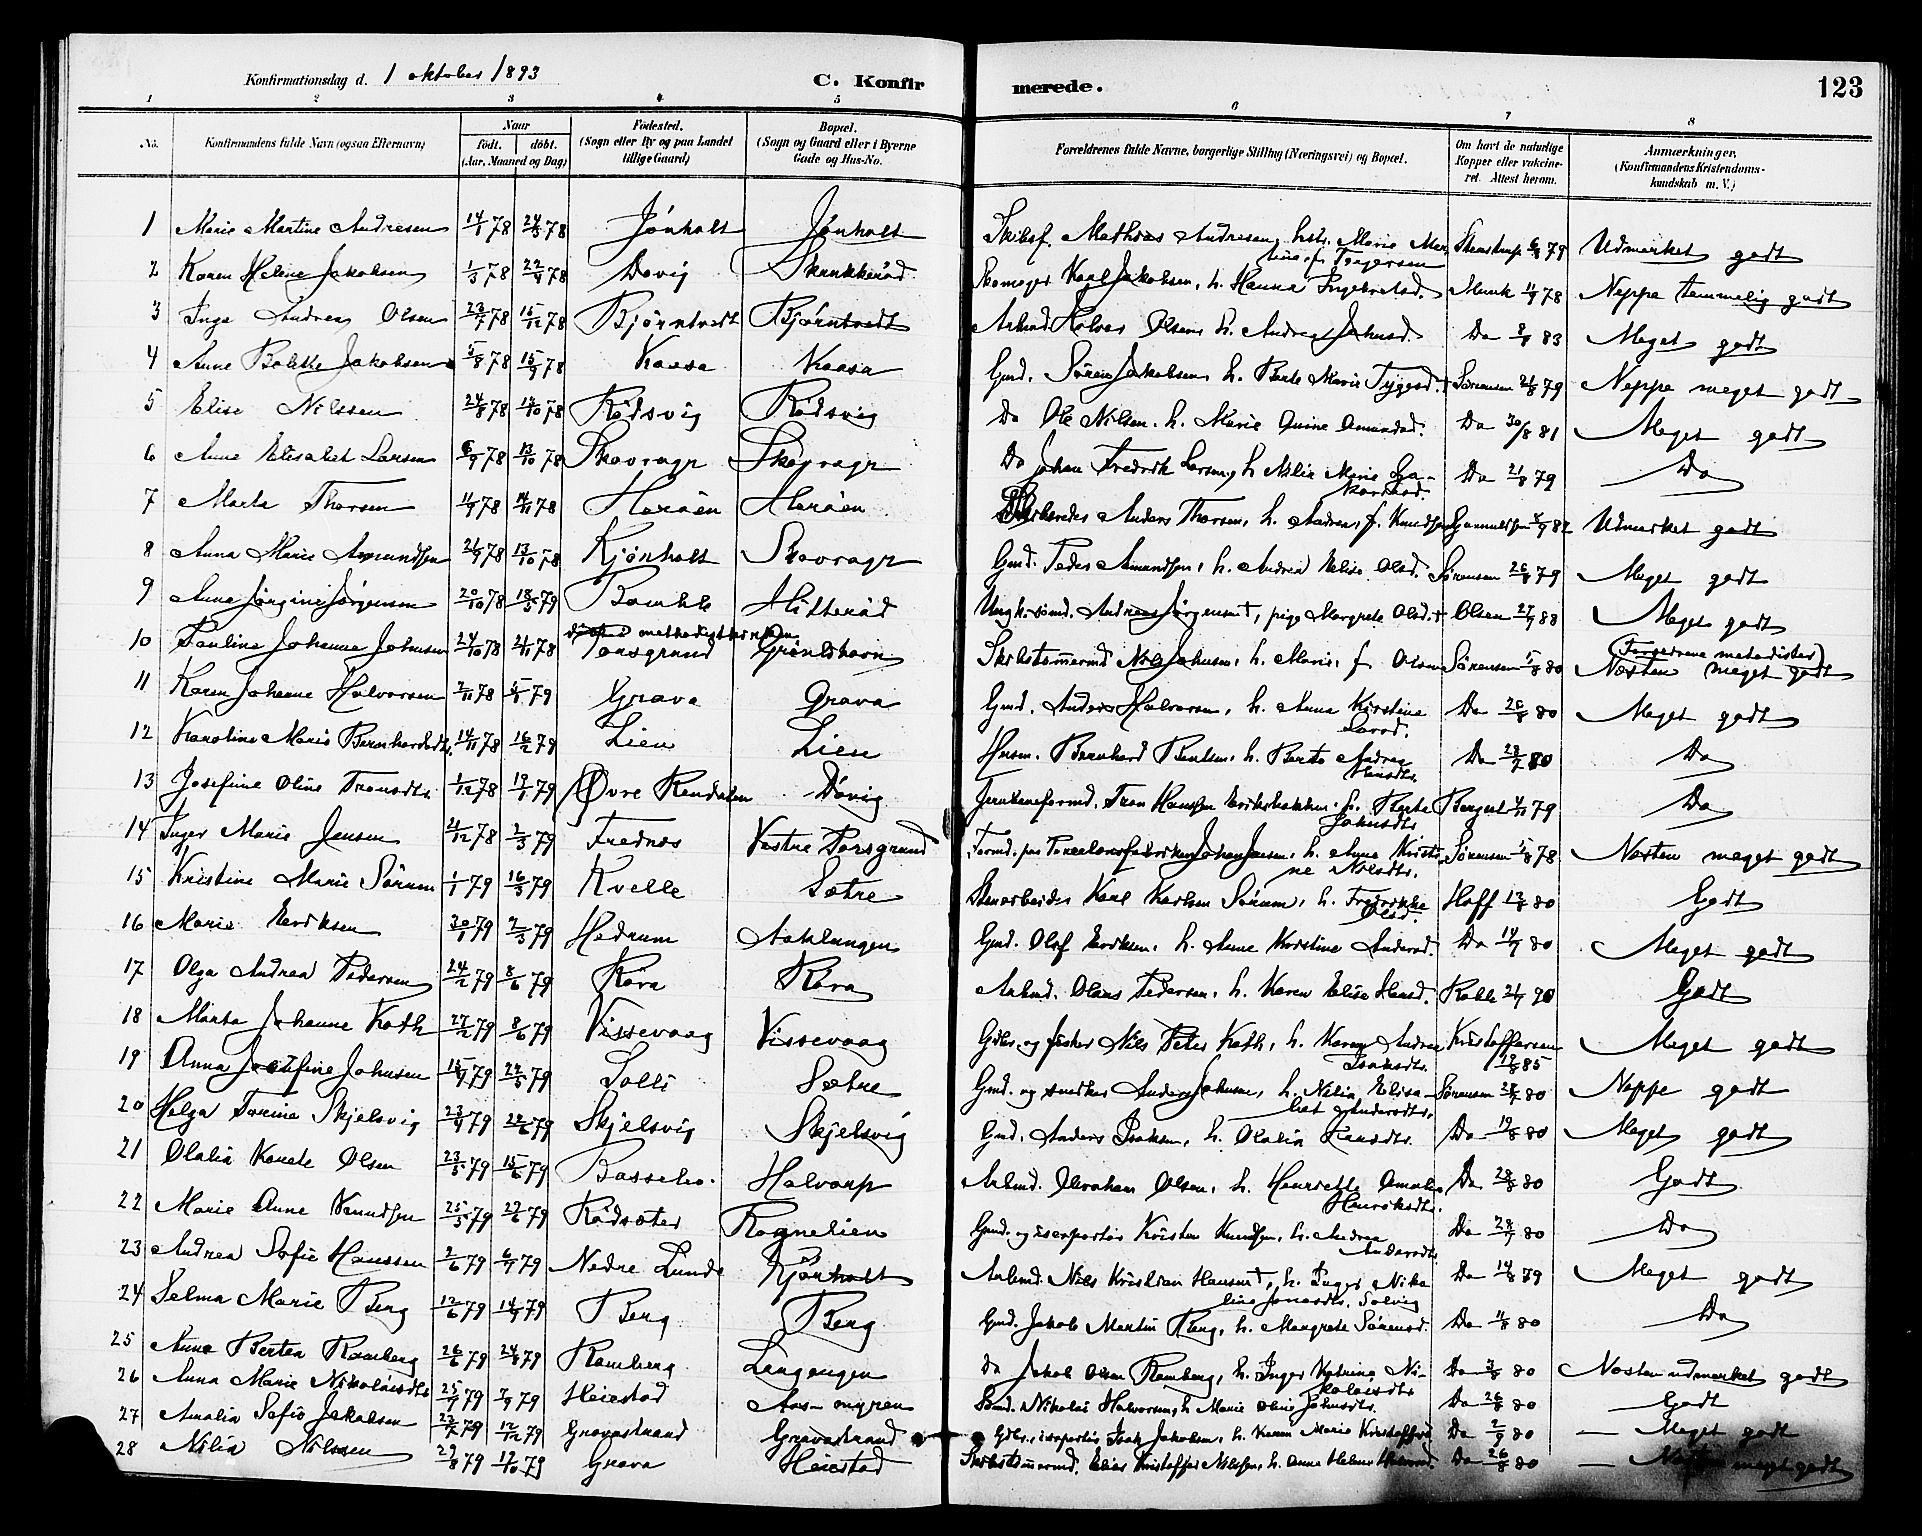 Konfirmationsdag d. 1 oktober 1893 C. Konfirmerede. 123
1 2 3 4 5 6 7 8
No. Konfirmandens fulde Navn (ogsaa Efternavn) Naar født. døbt. (Aar, Maaned og Dag) Fødested. (Sogn eller By og paa Landet tillige Gaard) Bopæl. (Sogn og Gaard eller i Byerne Gade og Hus-No. Forældrenes fulde Navne, borgerlige Stilling (Næringsvei) og Bopæl. Om havt de naturlige Kopper eller vakcineret. Attest herom. Anmærkninger. (Konfirmandens Kristendomskundskab m. V.)
1 Marie Martine Andresen 14/1 78 24/3 78 Jønholt Jønholt Skibsf. Mathias Andresen, hstr. Marie Torgersen 79 Udmærket godt
2 Karen Heline Jakobsen 1/3 78 22/4 78 Døvig Skrukkerød Skomager Karl Jakobsen, h. Hanna Ingebretsd. Munk 78 Neppe temmelig godt
3 Inga Andrea Olsen 23/7 78 15/12 78 Bjørntvedt Bjørntvedt Arbmd. Halvor Olsen, h. Andrea Johnsd. Do 83 Meget godt
4 Anne Bolette Jakobsen 5/8 78 15/9 78 Kaasa Kaasa Gmd. Søren Jakobsen, h. Berte Marie Tygesd. Sørensen 21/8 79 Neppe meget godt
5 Elise Nilssen 24/8 78 13/10 78 Rødsvig Rødsvig Do Ole Nilsen. h. Marie Amundsd. Do 30/8 81 Meget godt
6 Anne Elisabet Larsen 6/9 78 13/10 78 Skavrager Skavrager Do Johan Fredrik Larsen, h. Nilia Marie Do 21/8 79 Do
7 Marta Thorsen 11/9 78 14/11 78 Herøen Herøen Anders Thorsen, h. Andrea, f. Knudsen 82 Udmærket godt
8 Anna Marie Amundsen 21/9 78 13/10 78 Kjønholt Skavrager Gmd. Peder Amundsen, h. Andrea Elise Olsd. Sørensen 26/8 79 Meget godt
9 Anna Jørgine Jørgensen 20/10 78 18/5 79 Bamble Mitterød Ungk. sømd. Andreas Jørgensen †, pige Margrete Olsd. † Olsen 88 Meget godt
10 Pauline Johanne Johnsen 24/10 78 21/11 78 døbt i methodistkirken Porsgrund Grønlikavn Skibstømmermd Nils Johnsen, h. Marie, f. Olsen Sørensen 80 (Forældrene metodister) Næsten meget godt
11 Karen Johanne Halvorsen 2/11 78 79 Grava Grava Gmd. Anders Halvorsen, h. Anna Kirstine Larsd. Do 26/8 80 Meget godt
12 Karoline Marie Bernhardsdtr. 14/11 78 16/2 79 Lien Lien Husm. Bernhard Bentsen, h. Berte Andrea Do 80 Do
13 Josefine Oline Tronsdtr. 1/12 78 19/1 79 Øvre Rendalen Døvig Jernbaneformd. Tron Hansen Eriksbakken. h. Berte Johnsdtr. 79 Do
14 Inger Marie Jensen 21/12 78 2/3 79 Frednes Vestre Porsgrund Formd. paa Porcelænsfabriken Johan Jensen, h. Anne Kristine Nilsdtr. Sørensen 78 Næsten meget godt
15 Kristine Marie Sørum 1/1 79 16/3 79 Kvelle Sætre Stenarbeider Karl Karlsen Sørum, h. Fredrikke Olsd. Hoff 80 Godt
16 Marie Eriksen 20/1 79 2/3 79 Hedrum Aaklungen Gmd. Olof Eriksen, h. Anne Kristine Andersd. Do 80 Meget godt
17 Olga Andrea Pedersen 24/2 79 8/6 79 Røra Røra Arbmd. Olaus Pedersen, h. Karen Elise Hansd. 90 Godt
18 Marta Johanne Kath 27/2 79 8/6 79 Vissevaag Vissevaag Gdbr. og fisker Nils Peter Kath, h. Karen Andrea Isaksdtr. Kristoffersen 85 Meget godt
19 Anna Josefine Johnsen 79 22/5 79 Solli Sætre Gmd. og snedker Anders Johnsen, h. Nilia Elisabet Andersdtr. Sørensen 80 Neppe godt
20 Helga Torine Skjelsvig 23/4 79 22/6 79 Skjelsvig Skjelsvig Gmd. Anders Isaksen, h. Olalia Do 19/8 80 Meget godt
21 Olalia Olsen 23/5 79 15/6 79 Bassebo. Halvarp Arbmd. Abraham Olsen, h. Henriette Amalie Henriksdtr. Do 80 Godt
22 Marie Anne Knudsen 25/5 79 29/6 79 Rødsæter Rognelien Gmd. og iseksportør Kristen Knudsen, h. Andrea Andersdtr. Do 80 Do
23 Andrea Sofie Hanssen 2/6 79 6/7 79 Nedre Lunde Kjønholt Arbmd. Nils Kristian Hansen †, h. Inger Nikoline Jonasdtr. Solvig Do 14/8 79 Meget godt
24 Selma Marie Berg 12/6 79 14/9 79 Berg Berg Gmd. Jakob Martin Berg, h. Margrete Sørensd. Do 80 Do
25 Anna Berten Ramberg 26/6 79 24/8 79 Ramberg Langangen Do Jakob Olsen Ramberg, h. Inger Katrine Nikolaisdtr Do 80 Næsten udmærket godt
26 Anna Marie Nikolaisdtr 25/7 79 7/9 79 Heiestad Nikolai Halvorsen, h. Marie Oline Johnsdtr. Do 26/8 80 Godt
27 Amalia Sofie Jakobsen 79 79 Gravastrand Gravastrand Gdbr., iseksportør Isak Jakobsen, h. Karen Marie Kristoffersd Do 2/9 80 — Meget godt
28 Nilia Nilssen 29/8 79 79 Grava Heiestad Skibstømmermd. Elias Kristoffer Nilssen, h. Anne Helene Halvorsd. Do 26/8 80 — Næsten meget godt